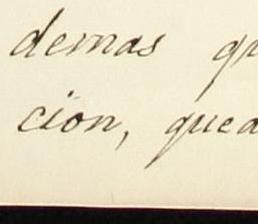 demas qu
cion, queda